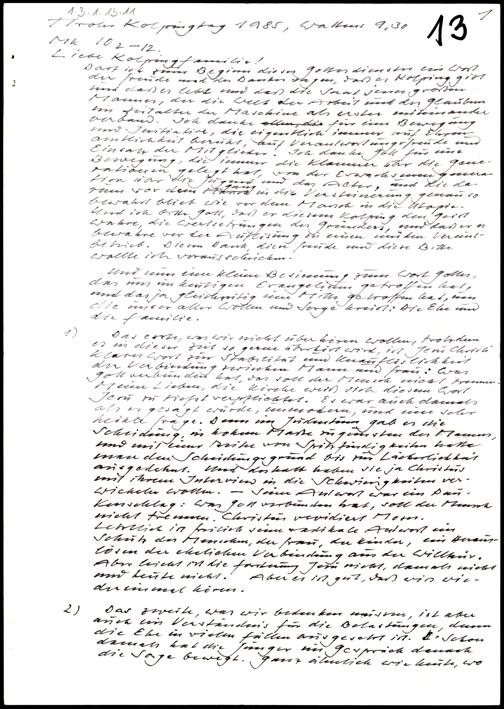 13.1.13.11
1
Tiroler Kolpingtag 1985, Wattens 9,30
13
Mk 10 2-12.
Liebe Kolpingfamilie!
Darf ich zum Beginn dieses Gottesdienstes ein Wort
der Freude und des Dankes sagen, daß es Kolping gibt
und daß es lebt und daß die Saat jenes großen
Mannes, der die Welt der Arbeit und des Glaubens
im Zeitalter der Maschine als erster miteinander
verband. Ich danke für eine Bewegung
und Initiative, die eigentlich immer auf Ehren-
amtlichkeit beruht, auf Verantwortungsfreude und
Einsatz der Mitglieder. Ich danke Gott für eine
Bewegung, die immer die Klammer über die Gene-
rationen gelegt hat, von der Erwachsenengenera-
tion über die Jugend und das Alter, und die da-
rum vor dem Gang in die Versteinerung genauso
bewahrt blieb wie vor dem Marsch in die Utopie.
Und ich bitte Gott, daß er diesem Kolping den Geist
wahre, die Wertsetzungen des Gründers, und daß er es
bewahre vor der Auflösung in einen müden Vereins-
betrieb. Diesen Dank, diese Freude und diese Bitte
wollte ich vorausschicken.
Und nun eine kleine Besinnung zum Wort Gottes,
das uns im heutigen Evangelium getroffen hat,
und das ja gleichzeitig eine Mitte getroffen hat, um
die unser aller Wollen und Sorge kreist: Die Ehe und
die Familie.
1) Das erste, was wir nicht überhören wollen, trotzdem
es in dieser Zeit so gerne überhört wird, ist Jesu Christi
klares Wort zur Stabilität und Unauflöslichkeit
der Verbindung zwischen Mann und Frau: Was
Gott verbunden hat, das soll der Mensch nicht trennen.
Meine Lieben, die Kirche weiß sich diesem Wort
Jesu zu tiefst verpflichtet. Es war auch damals
als es gesagt wurde, unmodern, und eine sehr
heikle Frage. Denn im Judentum gab es die
Scheidung, in hohem Maße zugunsten des Mannes,
und mit einer Reihe von Spitzfindigkeiten hatte
man den Scheidungsgrund bis zur Lächerlichkeit
ausgedehnt. Und deshalb haben sie ja Christus
mit ihrem Interview in die Schwierigkeiten ver-
wickeln wollen. – Seine Antwort war ein Pau-
kenschlag: Was Gott verbunden hat, soll der Mensch
nicht trennen. Christus revidiert Moses.
Letztlich ist freilich seine radikale Antwort ein
Schutz des Menschen, der Frau, der Kinder, ein Heraus-
lösen der ehelichen Verbindung aus der Willkür.
Aber leicht ist die Forderung Jesu nicht, damals nicht
und heute nicht. Aber es ist gut, daß wir sie wie-
dereinmal hören.
2) Das zweite, was wir bedenken müssen, ist aber
auch ein Verständnis für die Belastungen, denen
die Ehe in vielen Fällen ausgesetzt ist. Schon
damals hat die Jünger im Gespräch danach
die Sorge bewegt. Ganz ähnlich wie heute, wo